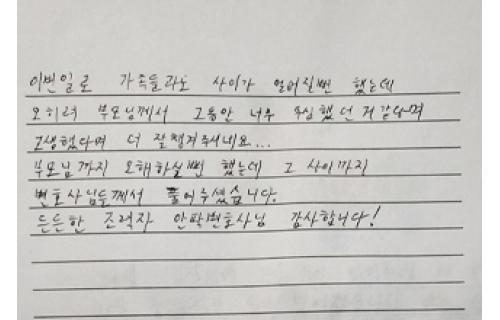 이번일로 가족들과도 사이가 멀어질뻔 했는데
오히려 부모님께서 그동안 너무 무심했던거같다며
고생했다며 더 잘챙겨주시네요...
부모님까지 오해하실뻔 했는데 그 사이까지
변호사님들께서 풀어주셨습니다.
든든한 조력자 안팍변호사님 감사합니다!